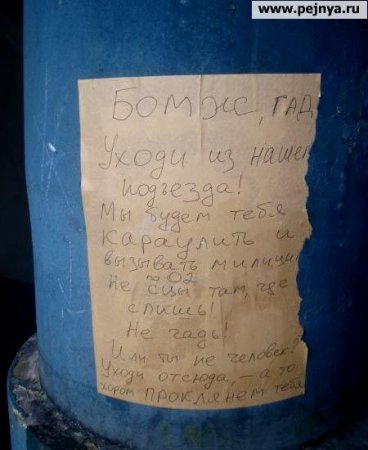 www.pejnya.ru
Бомж, гад
Уходи из нашег
подъезда!
Мы будем тебя
караулить и
вызывать милици
по 02
Не сцы там, где
спишь!
Не гадь!
Или ты не человек?
Уходи отсюда, – а то
хором проклянем тебя